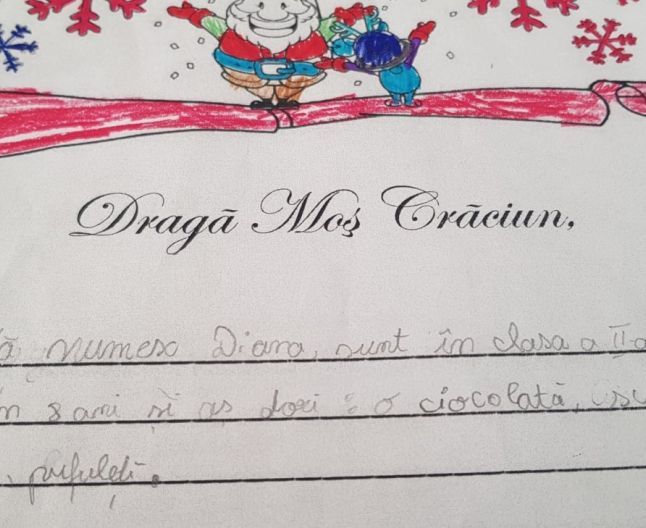 Dragă Moș Crăciun,
ă numesc Diana, sunt în clasa a II-a
8 ani și aș dori : o ciocolată,
pufuleți.